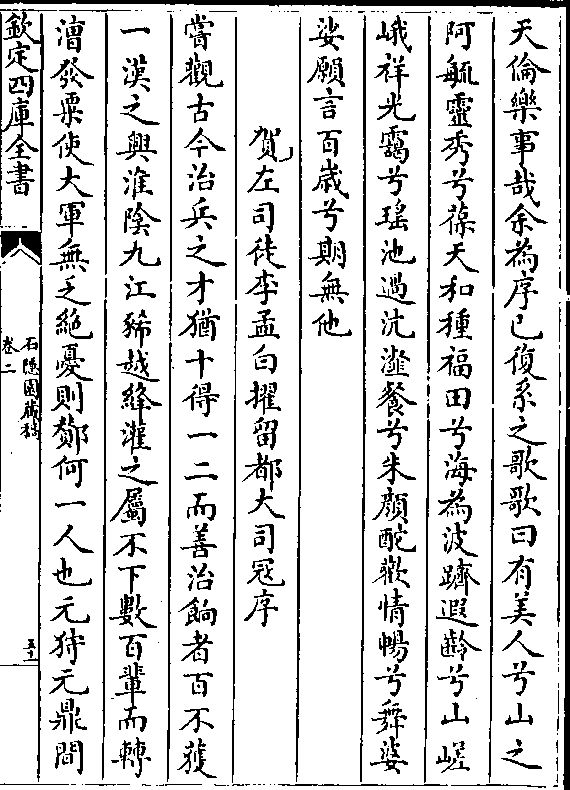 天倫樂事哉余為序已復系之歌歌曰有美人兮山之
阿毓靈秀兮葆天和種福田兮海為波躋遐齡兮山嵯
峨祥光靄兮瑶池過沆瀣餐兮朱顔酡歡情暢兮舞婆
娑願言百歲兮期無他
賀左司徒李孟白擢留都大司冦序
嘗觀古今治兵之才猶十得一二而善治餉者百不獲
一漢之興淮陰九江豨越絳灌之屬不下數百輩而轉
漕發粟使大軍無乏絶憂則酇何一人也元狩元鼎間
欽定四庫全書
石隠園藏稿
卷二